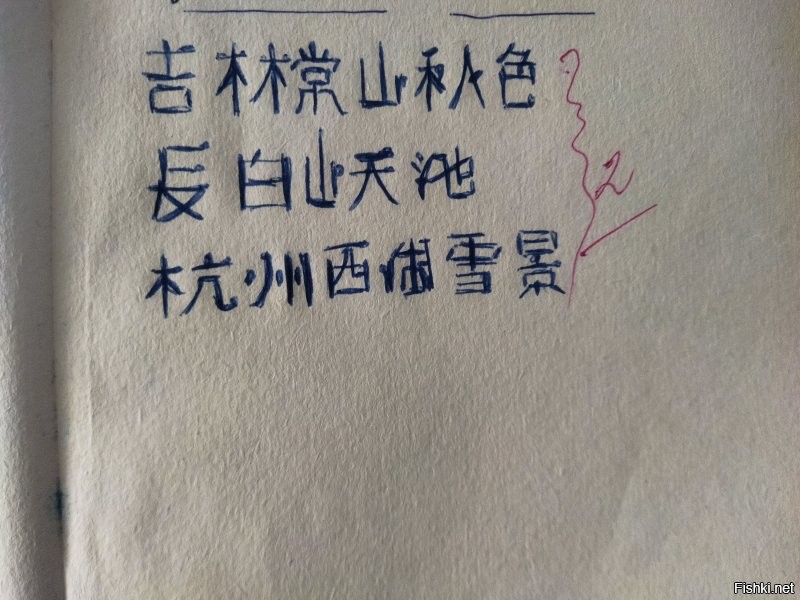 吉林棠山秋色
長白山天池
2
杭州西湖雪景
Fishki.net